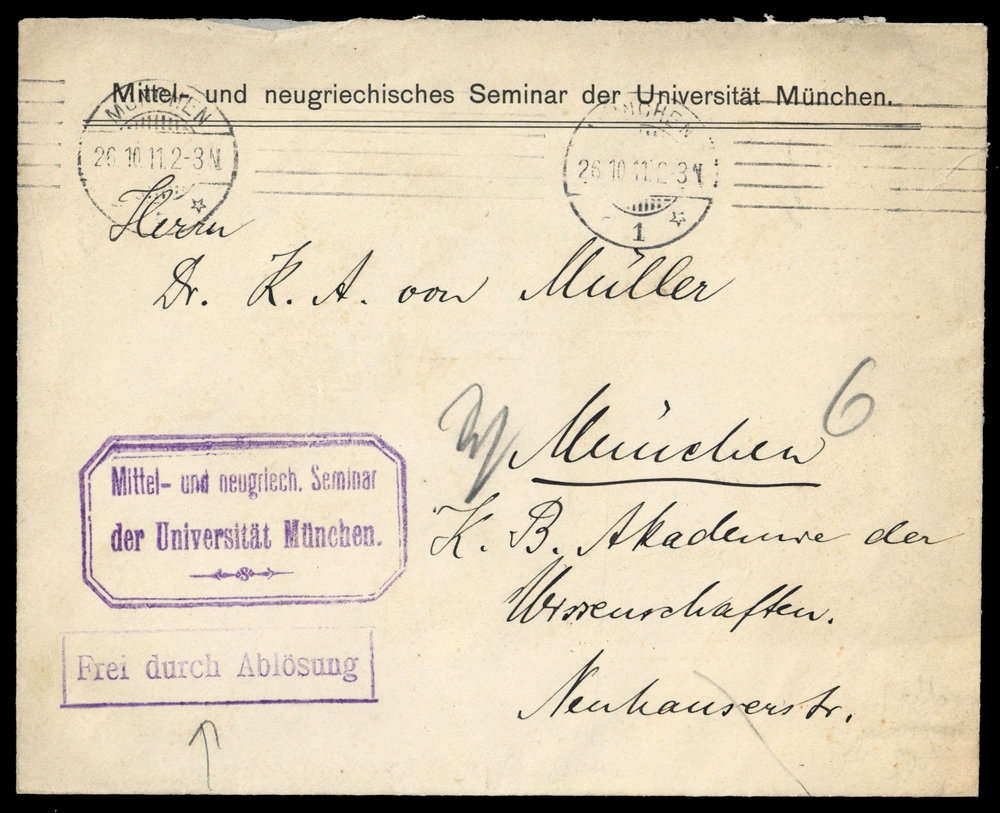 Mittel- und neugriechisches Seminar der Universität München.
MÜNCHEN
26.10.11.2-3N
MÜNCHEN
26.10.11.2-3N
1
Herrn
Dr. K. A. von Müller
6
München
K. B. Akademie der
Wissenschaften.
Neuhauserstr.
Mittel- und neugriech. Seminar
der Universität München.
Frei durch Ablösung